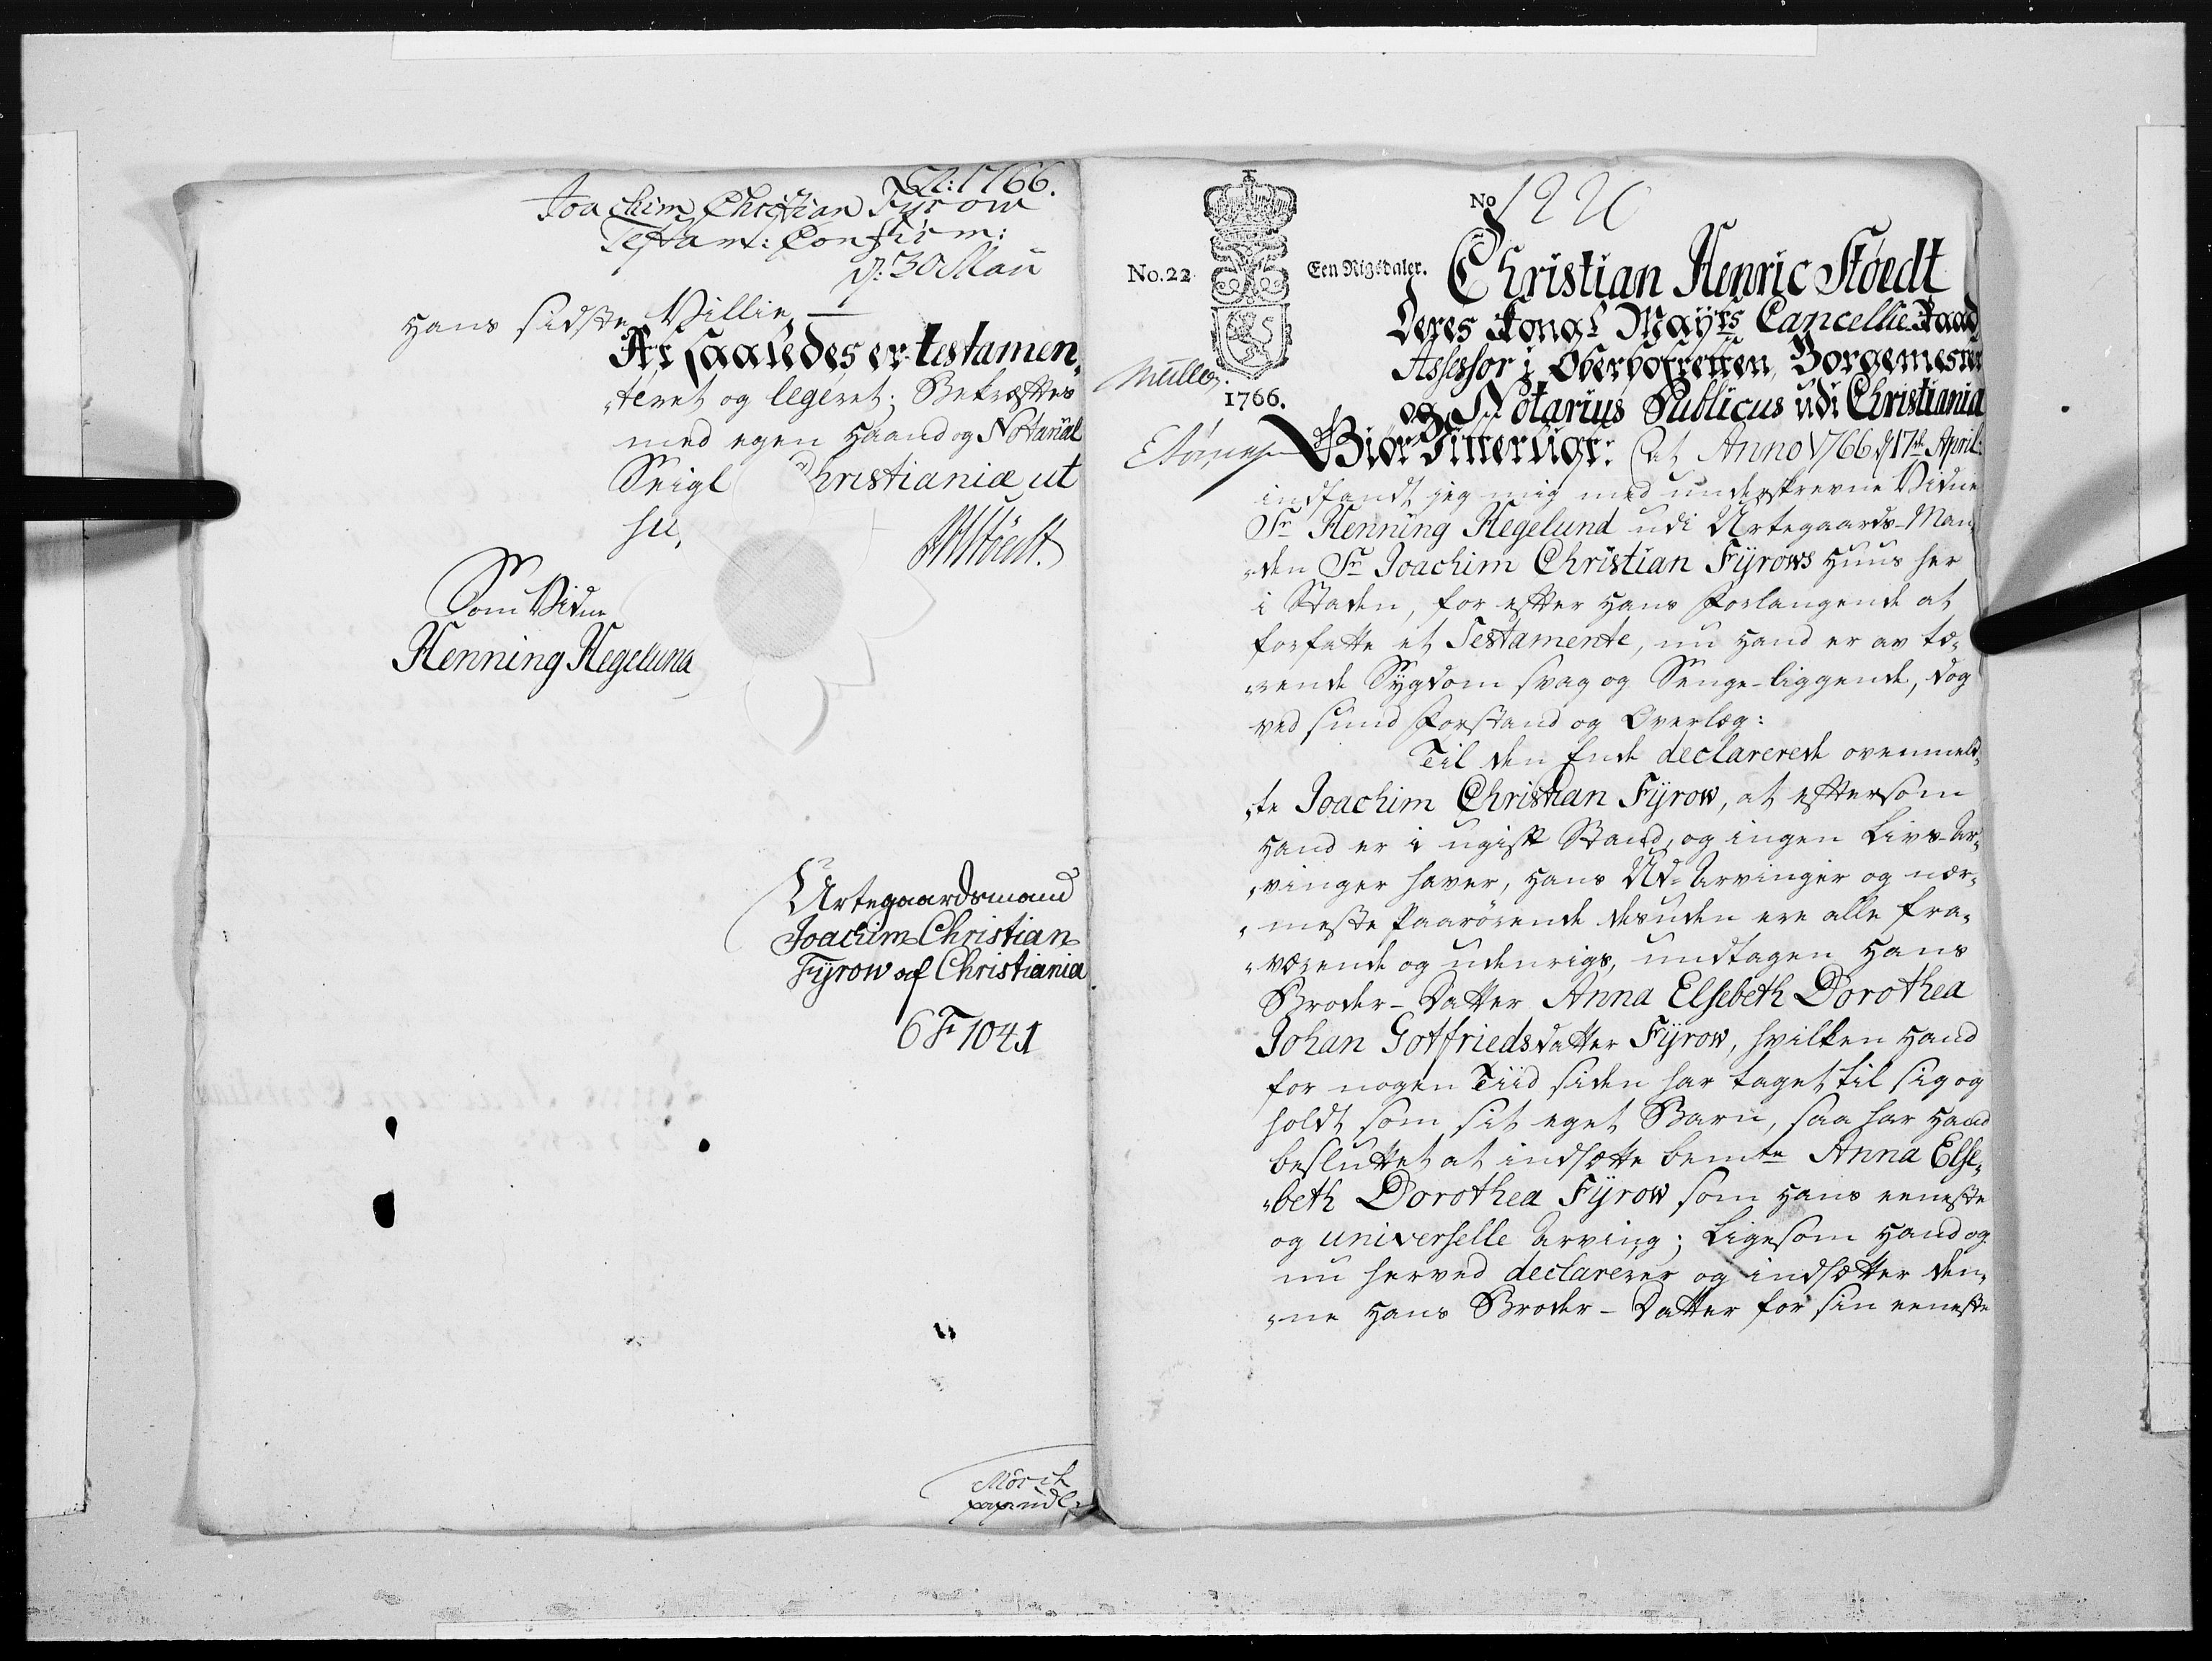 A: 1766.
Joachim Christian Fyrow
Testam: Confirm:
d: 30 Maii
Hans sidste Villie
At saaledes er testamen-
-teret og legeret; Bekræftes
med egen Haand og Notarial
Seigl Christianiæ ut
su.
CHStöedt.
Som Vidne
Henning Hegelund
Urtegaardsmand
Joachim Christian
Fyrow af Christiania
6 F 1041
Mörch
No
No. 22
Een Rigsdaler.
1766.
Müller.
Christian Henric Stöedt
Deres Kongl Mayts Cancellie Raad
Assessor i Oberhofretten, Borgemester
og Notarius Publicus udi Christiania
Giør Vitterligt: at Anno 1766 d 17de April:
indfandt jeg mig med underskrevne Vidne
Sr Henning Hegelund udi Urtegaards-Man-
-den Sr Joachim Christian Fyrows Huus her
i Staden, for efter Hans Forlangende at
forfatte et Testamente, nu Hand er av tæ-
-rende Sygdom svag og Senge-liggende, dog
ved sund Forstand og Overlæg:
Til den Ende declarerede ovenmeld-
-te Joachim Christian Fyrow, at eftersom
Hand er i ugift Stand, og ingen Livs-Ar-
-vinger haver, Hans Ud-Arvinger og nær-
-meste Paarörende desuden ere alle fra-
-værende og udenrigs, undtagen Hans
Broder-Datter Anna Elsebeth Dorothea
Johan Gotfriedsdatter Fyrow, hvilken Hand
for nogen Tiid siden har taget til sig og
holdt som sit eget Barn, saa har Hand
besluttet at indsætte bemte Anna Else-
-beth Dorothea Fyrow som Hans eeneste
og universelle Arving; Ligesom Hand og
nu herved declarerer og indsætter den-
-ne Hans Broder-Datter for sin eeneste